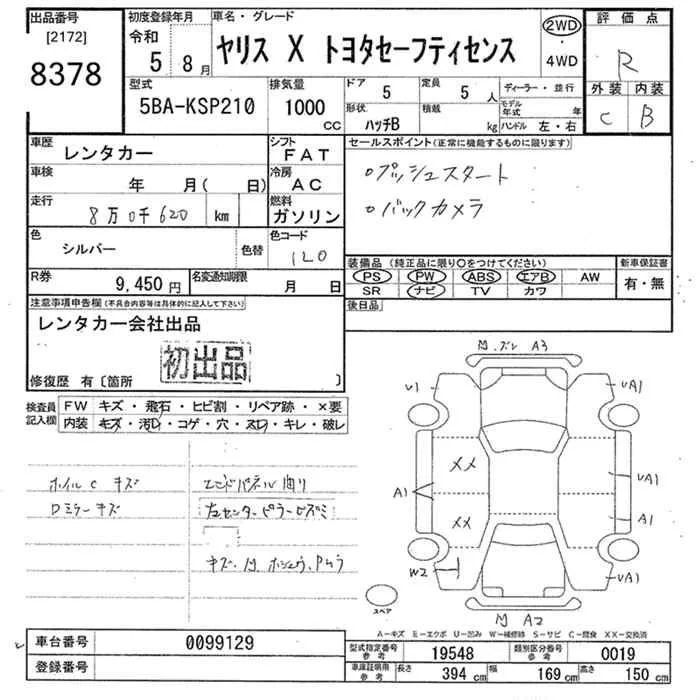 出品番号
[2172]
8378
初度登録年月
令和
5 8月
車名・グレード
ヤリス X トヨタセーフティセンス
2WD
・
4WD
評価点
R
外装 内装
C B
型式
5BA-KSP210
排気量
1000
CC
ドア
5
定員
5 人
形状
ハッチB
積載
kg
ディーラー・並行
モデル年式 年
ハンドル 左・右
車歴
レンタカー
シフト
FAT
車検
年 月( 日)
冷房
AC
走行
8万0千620 km
燃料
ガソリン
色
シルバー
色替
色コード
120
R券
9,450円
名変通知期限
月 日
セールスポイント(正常に機能するものに限ります)
○プッシュスタート
○バックカメラ
装備品 (純正品に限り○をつけてください)
PS PW ABS エアB AW
SR ナビ TV カワ
新車保証書
有・無
後日品
注意事項申告欄(不具合内容等は具体的に記入して下さい)
レンタカー会社出品
初出品
修復歴 有〔箇所 〕
検査員
記入欄
FW キズ・飛石・ヒビ割・リペア跡・×要
内装 キズ・汚レ・コゲ・穴・スレ・キレ・破レ
ホイルC キズ
Dミラーキズ
エンドパネル曲り
左センターピラーヒズミ
A3
U1
UA1
XX
XX
A1
UA1
A1
W2
UA1
A2
スペア
A-キズ E-エクボ U-凹み W-補修跡 S-サビ C-腐食 XX-交換済
車台番号
0099129
登録番号
型式指定番号
参考
19548
類別区分番号
参考
0019
車庫証明用
参考
長さ 394 cm 幅 169 cm 高さ 150 cm